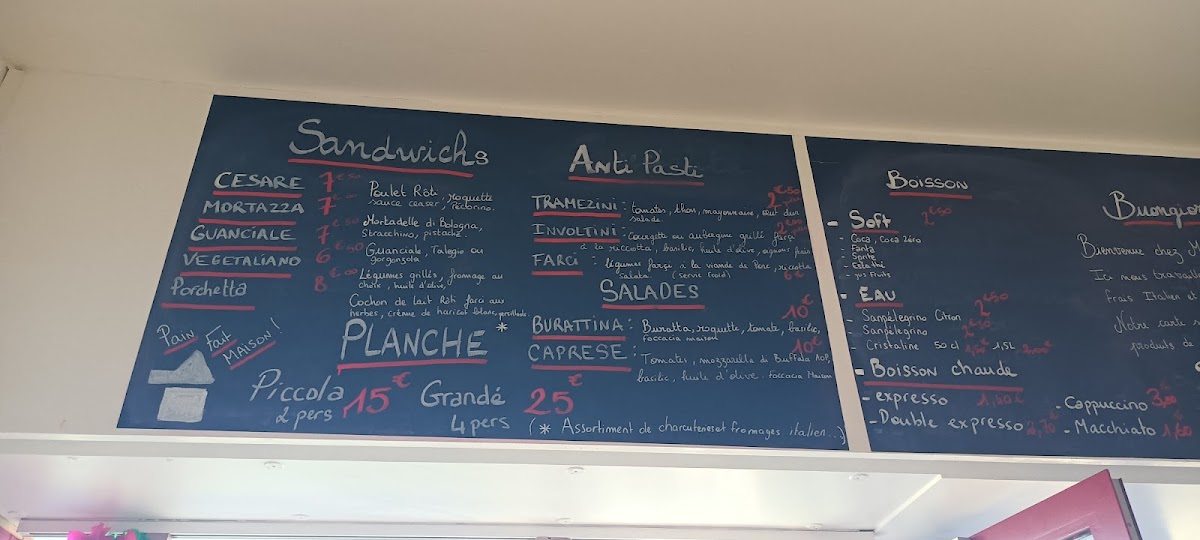 Sandwichs
CESARE 7€50 Poulet Rôti, roquette
sauce ceaser, pecorino.
MORTAZZA 7€ Mortadelle di Bologna,
Stracchino, pistache
GUANCIALE 7€50 Guanciale, Talegio ou
gorgonzola
VEGETALIANO 6€40 Légumes grillés, fromage au
choix, huile d'olive,
Porchetta 8€00 Cochon de lait Rôti farci aux
herbes, crème de haricot blanc, persillade.
Pain
Fait
MAISON!
PLANCHE *
Piccola 15€
2 pers
Grandé 25€
4 pers
(* Assortiment de charcuteries et fromages italien...)
Anti Pasti
TRAMEZINI: tomates, thon, mayonnaise, œuf dur 2€50
salade.
INVOLTINI: Courgette ou aubergine grillé farçi
à la riccotta, basilic, huile d'olive, agrume frais
FARCI: légumes farçi à la viande de Porc, riccotta
salata. (servie froid) 6€
SALADES
BURATTINA: Buratta, roquette, tomate, basilic, 10€
foccacia maison
CAPRESE: Tomates, mozzarella di Buffala AOP, 10€
basilic, huile d'olive. foccacia Maison
BOISSON
- Soft 2€50
- Coca, Coca Zéro
- Fanta
- Sprite
- Esta thé
- jus Fruits
- EAU
- Sanpélegrino Citron 2€50
- Sanpélegrino 2€50
- Cristaline 50cl 1,50€ 1,5L 2,00€
- Boisson chaude
- expresso 1,60€
- Double expresso 2,70€
- Cappuccino 3,00
- Macchiato 1,80
Buongior
Bienvenue chez M
Ici nous travaill
frais Italien et
Notre carte
produits de